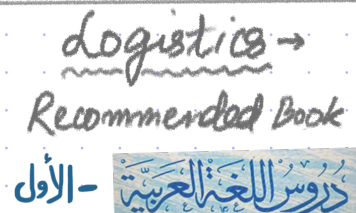 Logistics →
Recommended Book
دُرُوسُ اللُّغَةِ العَرَبِيَّةِ - الأول